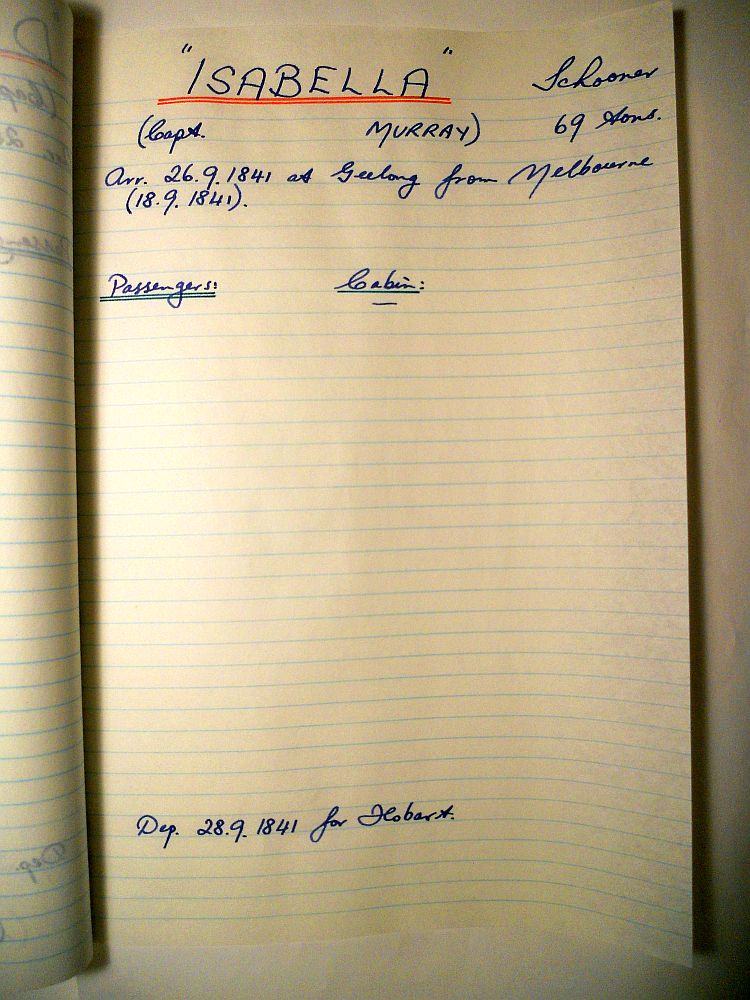 "ISABELLA" Schooner
(Capt. MURRAY) 69 tons.
Arr. 26.9.1841 at Geelong from Melbourne
(18.9.1841).
Passengers: Cabin:
—
Dep. 28.9.1841 for Hobart.
Dep.